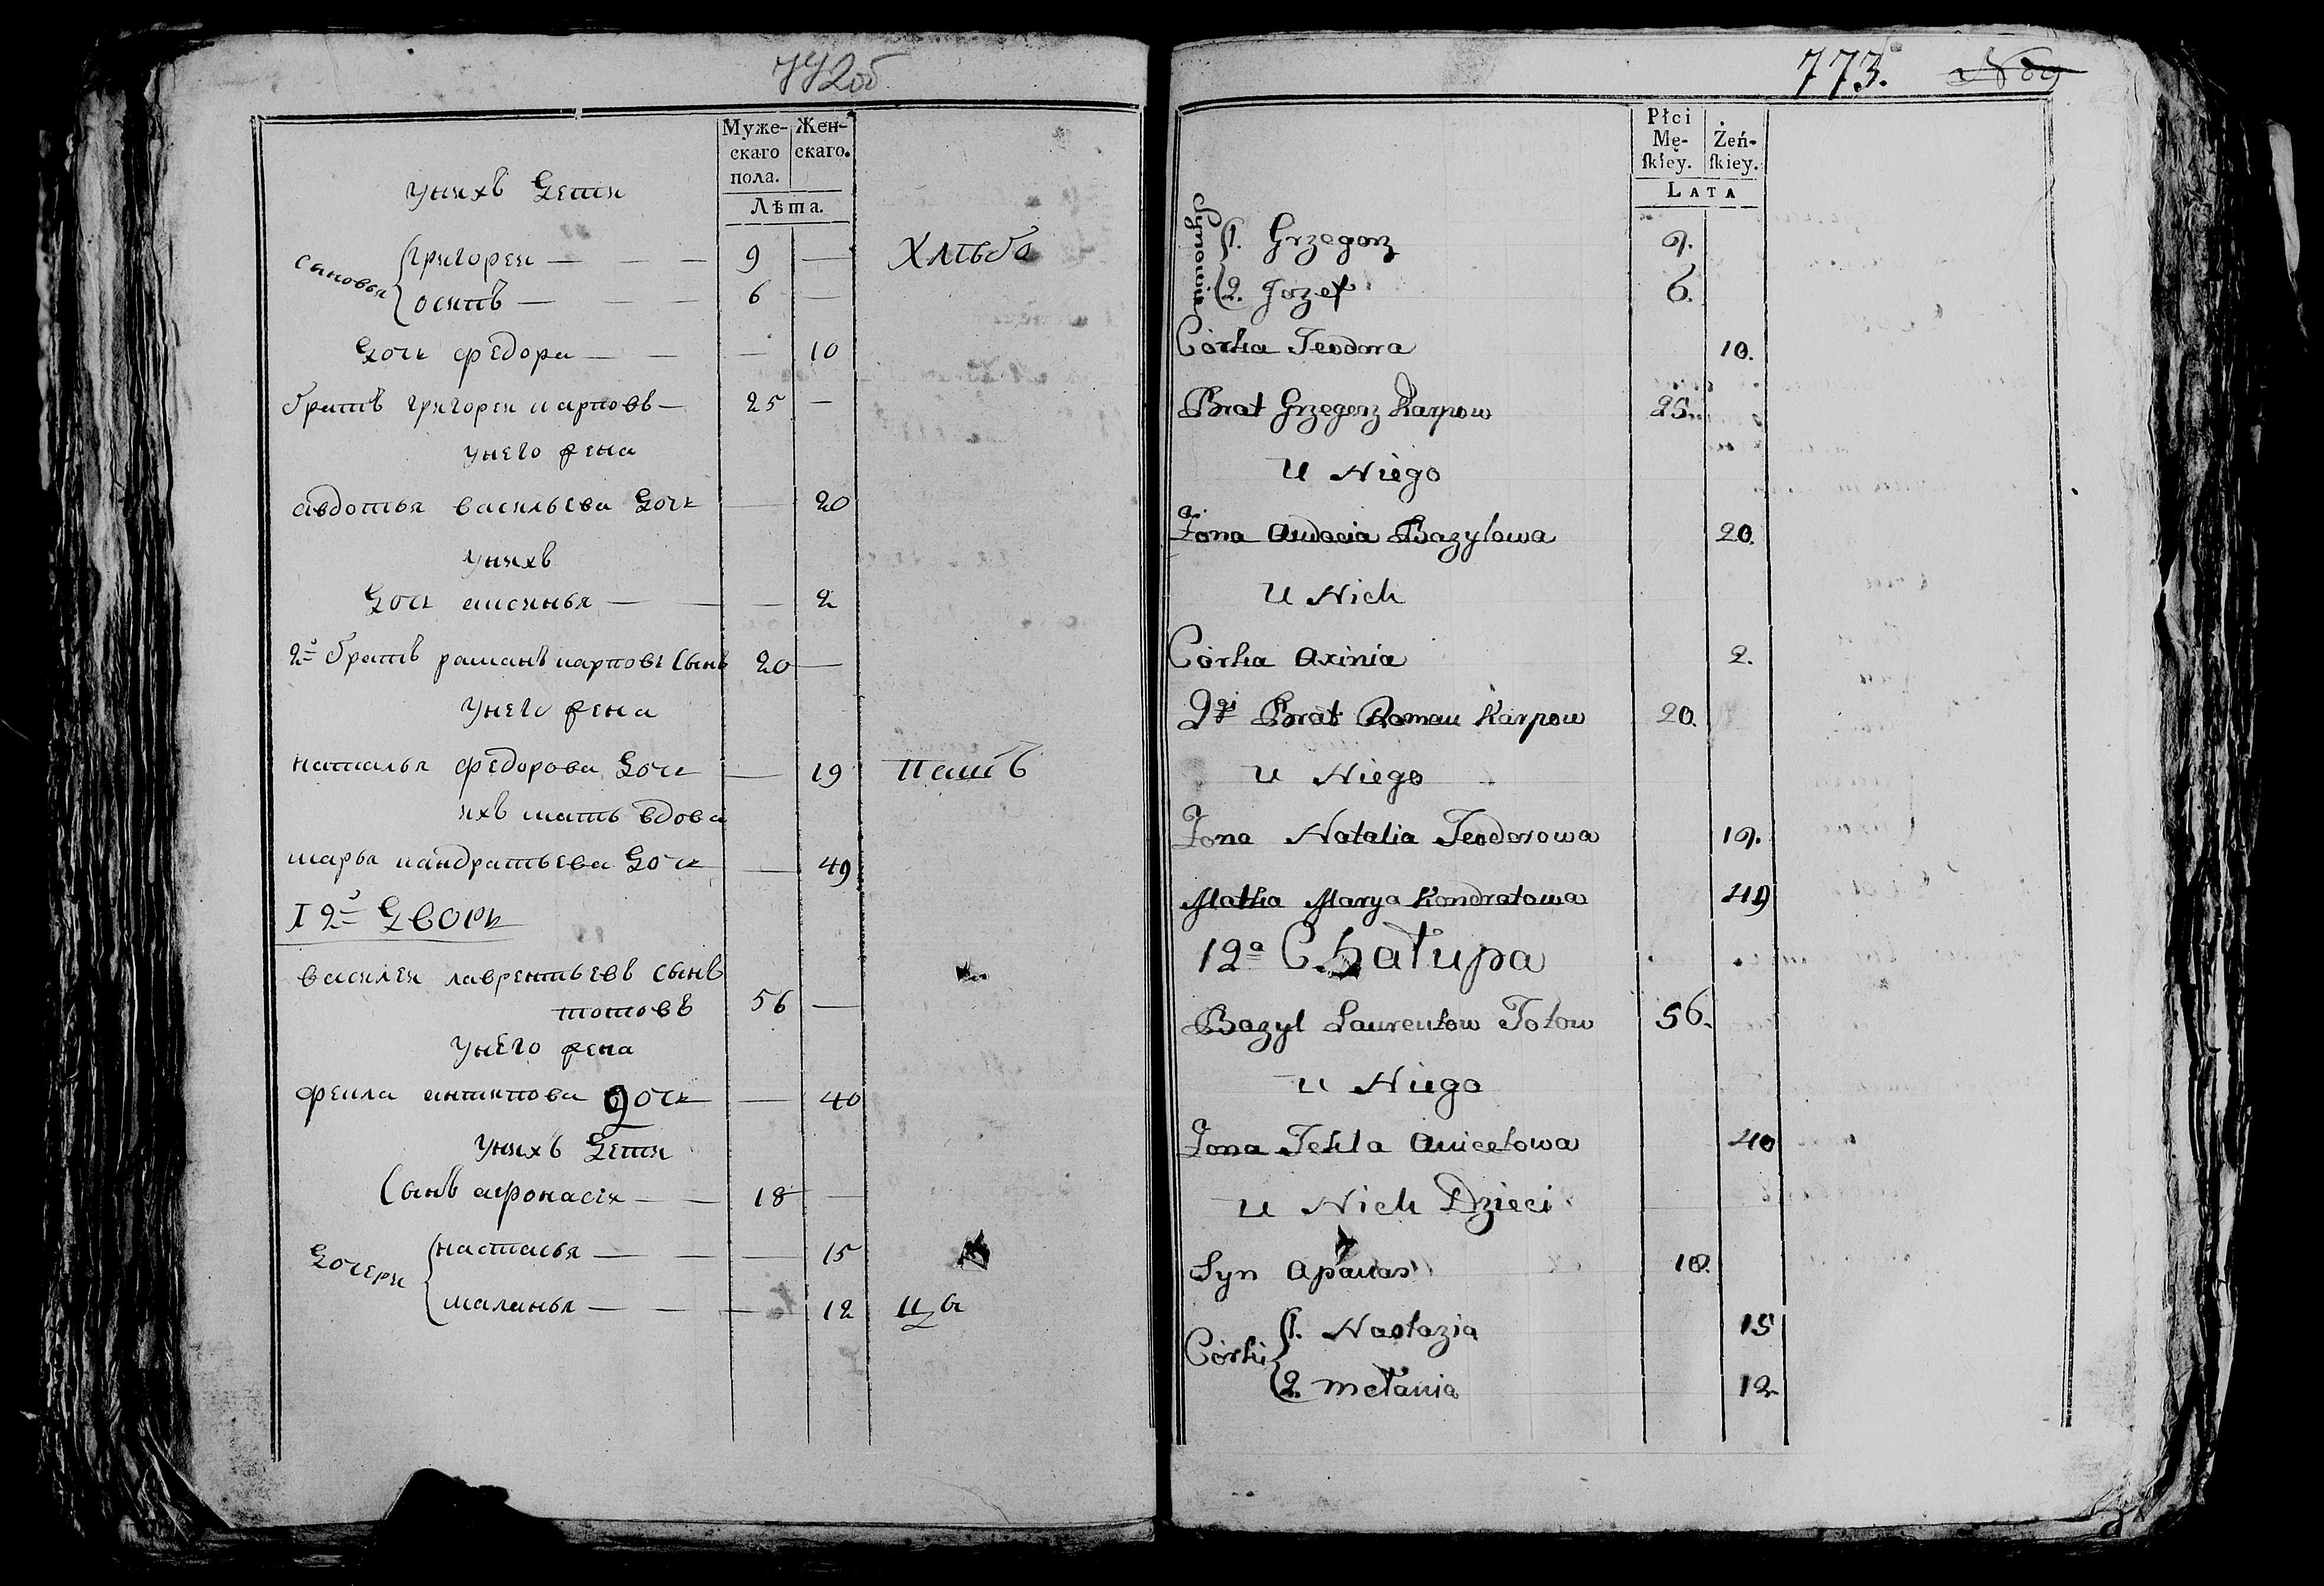 772об
Муже-
скаго
пола.
Жен-
скаго.
Лѣта.
унихъ дети
сыновья
григореи — — — 9 —
Хлѣбо
осипъ — — — 6 —
дочь федора — — — 10
братъ григореи карповъ — 25 —
унего жена
авдотья васильева дочь — 20
унихъ
дочь аксинья — — — 2
2й братъ раманъ карповъ сынъ 20 —
унего жена
наталья федорова дочь — 19
пашъ
ихъ мать вдова
марья кандратьева дочь — 49
12й дворъ
василеи лаврентьевъ сынъ
тотовъ 56 —
унего жена
фекла антипова дочь — 40
унихъ дети
сынъ афонасiя — — 18 —
дочери
настасья — — — 15
маланья — — — 12
ца
773.
Płci
Mę-
ſkiey.
Żeń-
ſkiey.
LATA
Synowie
1. Grzegorz 9.
2. Jozef 6.
Córka Teodora 10.
Brat Grzegorz Karpow 25.
U Niego
Żona Audocia Bazylowa 20.
U Nich
Córka Axinia 2.
2gi Brat Roman Karpow 20.
U Niego
Żona Natalia Teodorowa 19.
Matka Marya Kondratowa 49
12a Chałupa
Bazyl Laurentow Totow 56.
U Niego
Żona Tekla Anicetowa 40
U Nich Dzieci
Syn Apanas 18.
Córki
1. Nastazia 15
2. Mełania 12